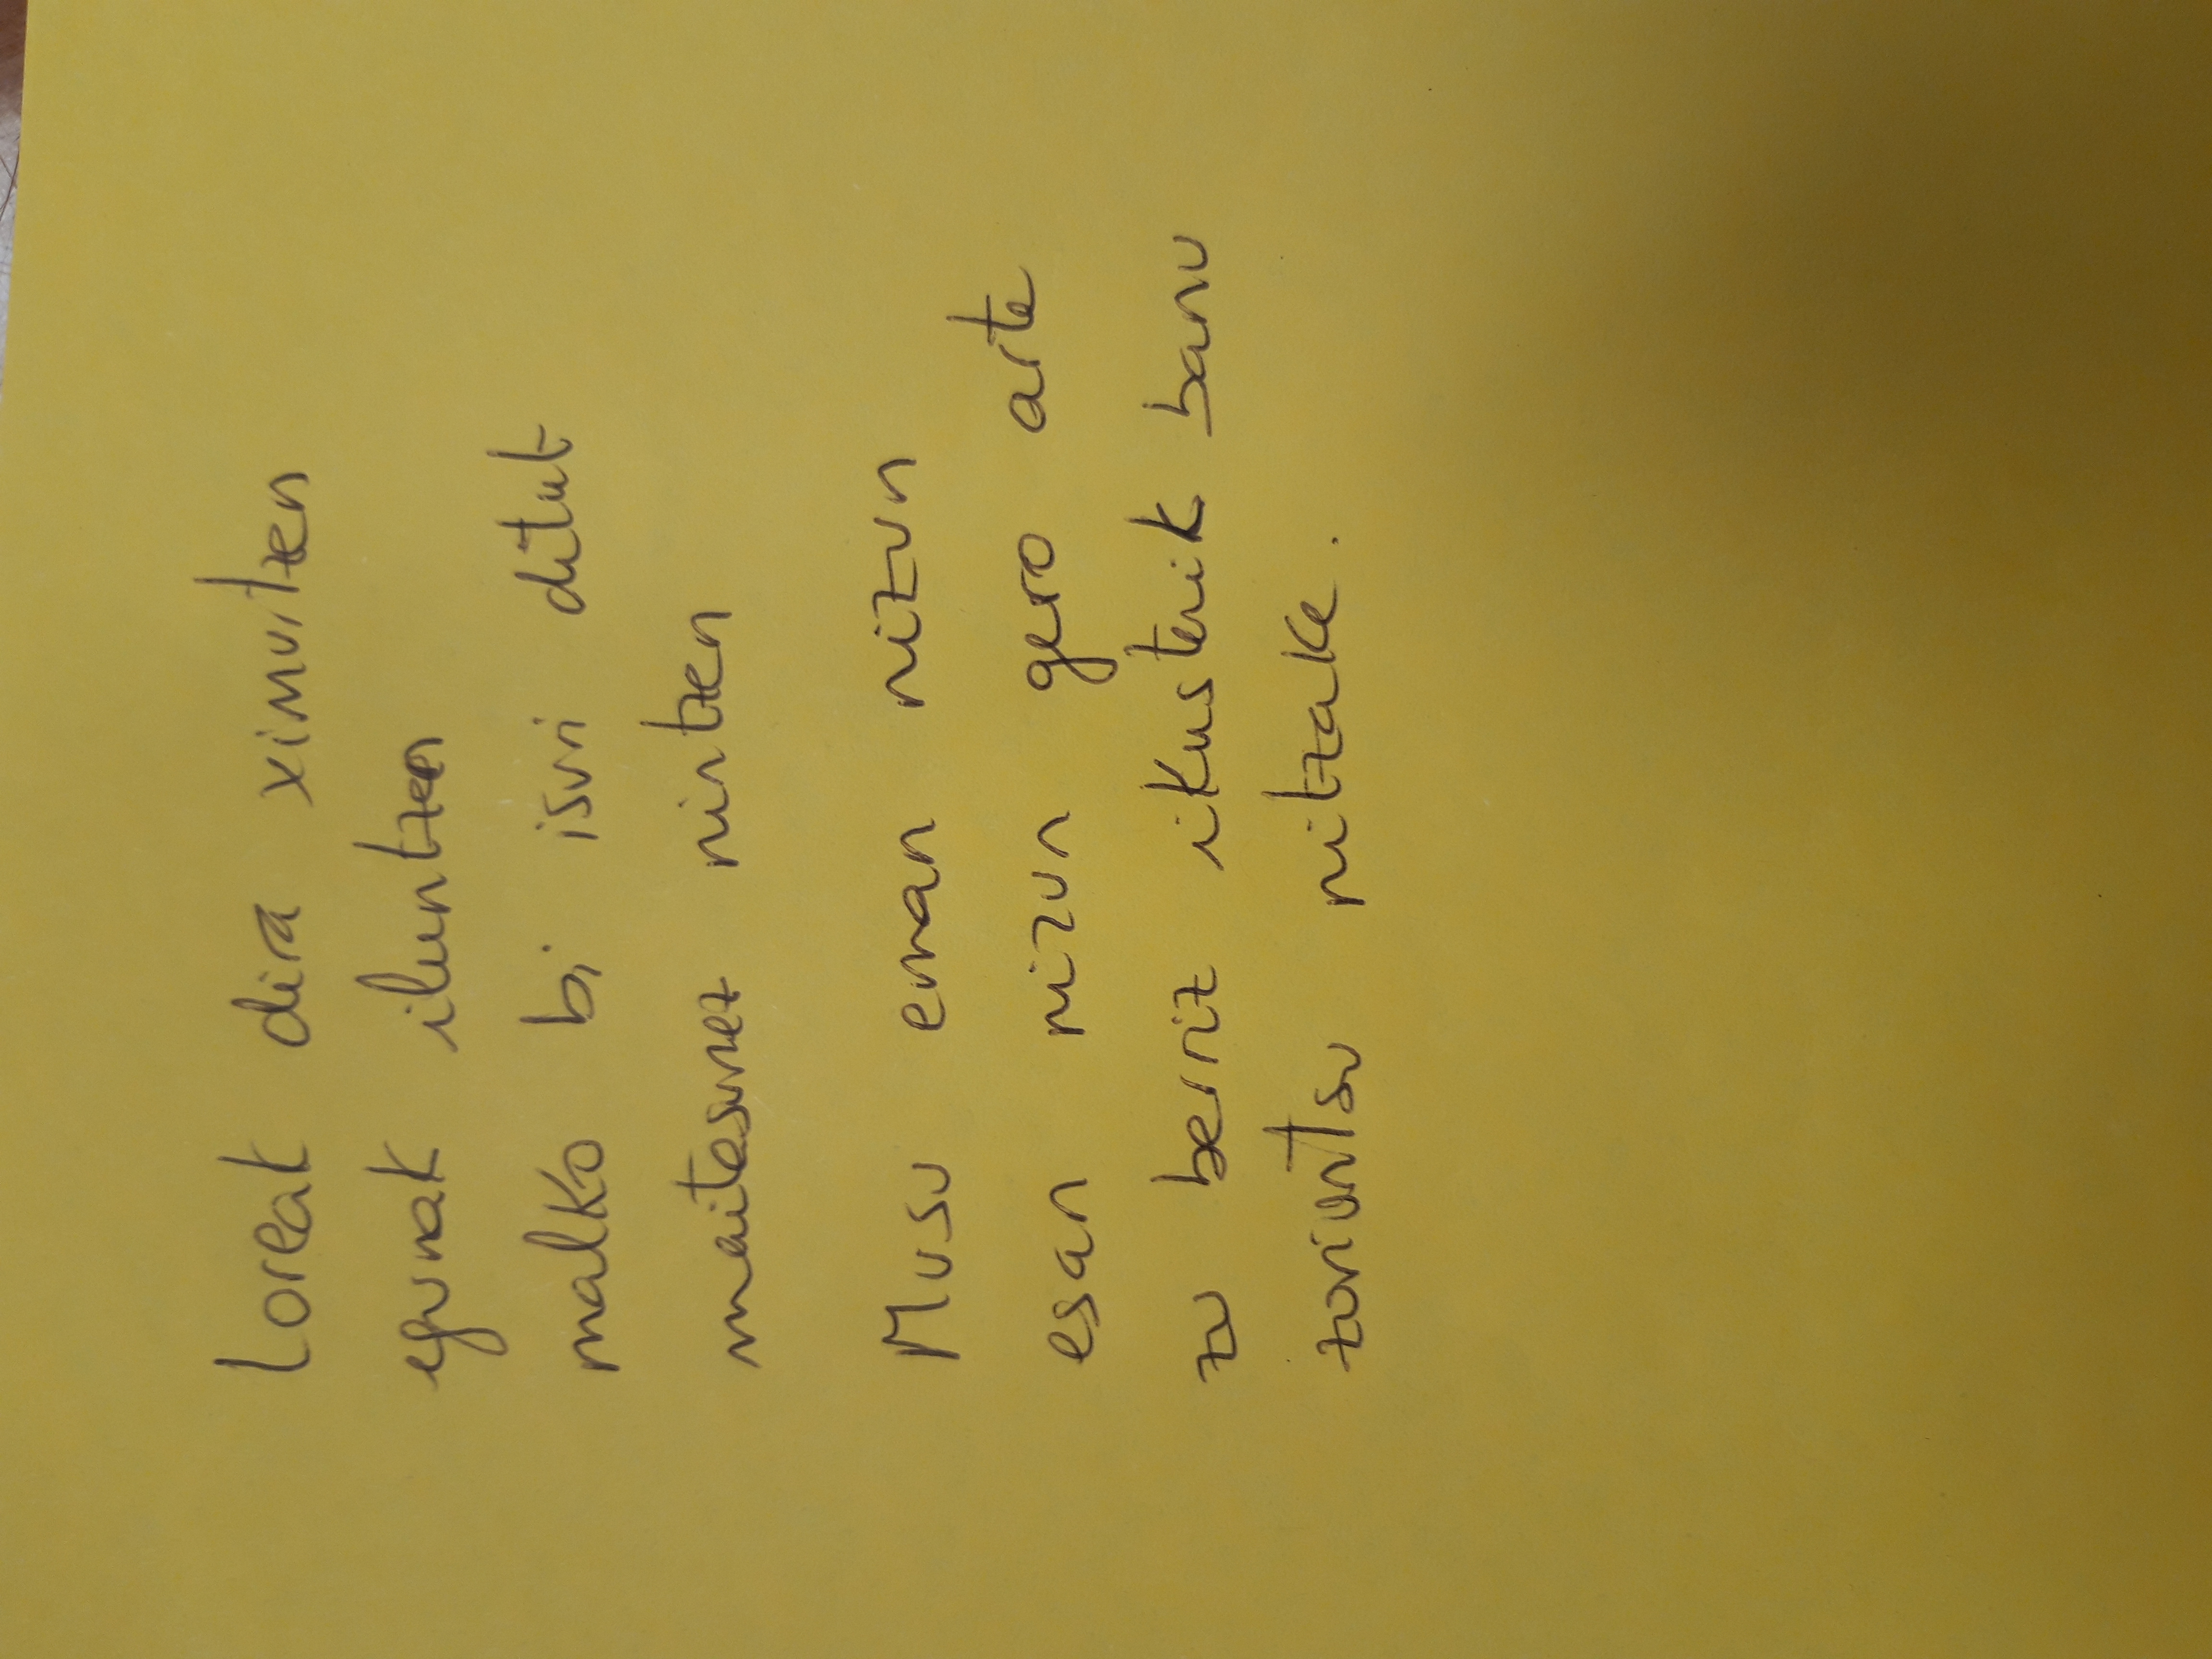 Loreak dira ximurtzen
egunak iluntzen
malko bi isuri ditut
maitasunez nintzen
Musu eman nizun
esan nizun gero arte
zu berriz ikusterik banu
zoriontsu nitzake.